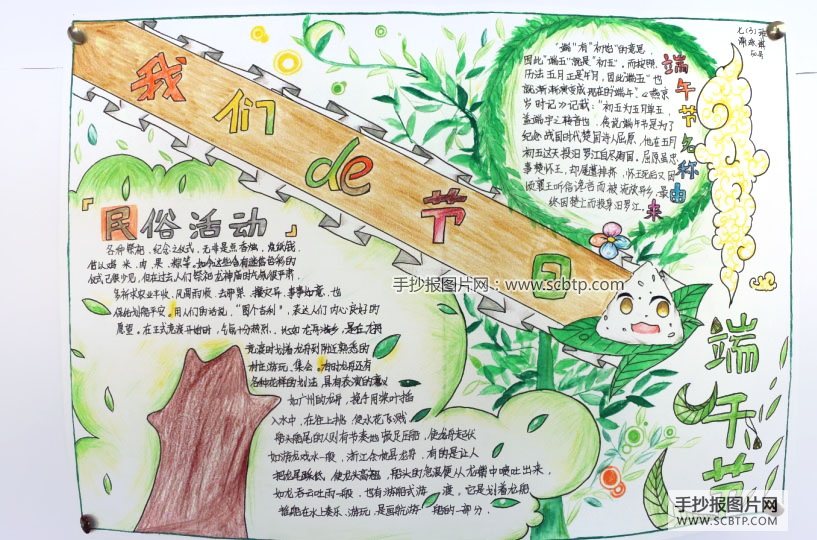 我们de节日
七(3)班
50号
端午节名称由来
"端"有"初始"的意思,
因此"端五"就是"初五"。而按照
历法五月正是午月,因此"端五"也
就渐渐演变成现在的"端午"。《燕京
岁时记》记载:"初五为五月单五,
盖端字之转音也
纪念战国时代楚国诗人屈原,他在五月
初五这天投汨罗江自尽殉国,屈原虽忠
事楚怀王,却屡遭排挤,怀王死后又因
顷襄王听信谗言而被流放异乡,最
终因楚亡而投身汨罗江。
「民俗活动」
各种祭祀、纪念之仪式,无非是点香烛,烧纸钱,
供以鸡、米、肉、果、粽等。如今这些含有迷信色彩的
仪式已很少见,但在过去人们祭祀龙神庙时气氛很严肃,
多祈求农业丰收、风调雨顺、去邪祟、攘灾异、事事如意,也
保佑划船平安。用人们的话说,"图个吉利",表达人们内心良好的
愿望。在正式竞渡开始时,气氛十分热烈。
竞渡时划着龙舟到附近熟悉的
村庄游玩、集会。有时龙舟还有
各种花样的划法,具有表演的意义
如广州的龙舟,挽手用桨叶插
入水中,在往上挑,使水花飞溅
船头船尾的人则有节奏地顿足压船,使龙舟起伏
如游龙戏水一般。浙江余杭县龙舟,有的是让人
把龙尾踩低,使龙头高翘,船头的急浪便从龙嘴中喷吐出来,
如龙吞云吐雨一般。也有游船式游渡。它是划着龙船
在水上奏乐、游玩
的一部分。
端午节
手抄报图片网:www.scbtp.com
手抄报图片网
WWW.SCBTP.COM